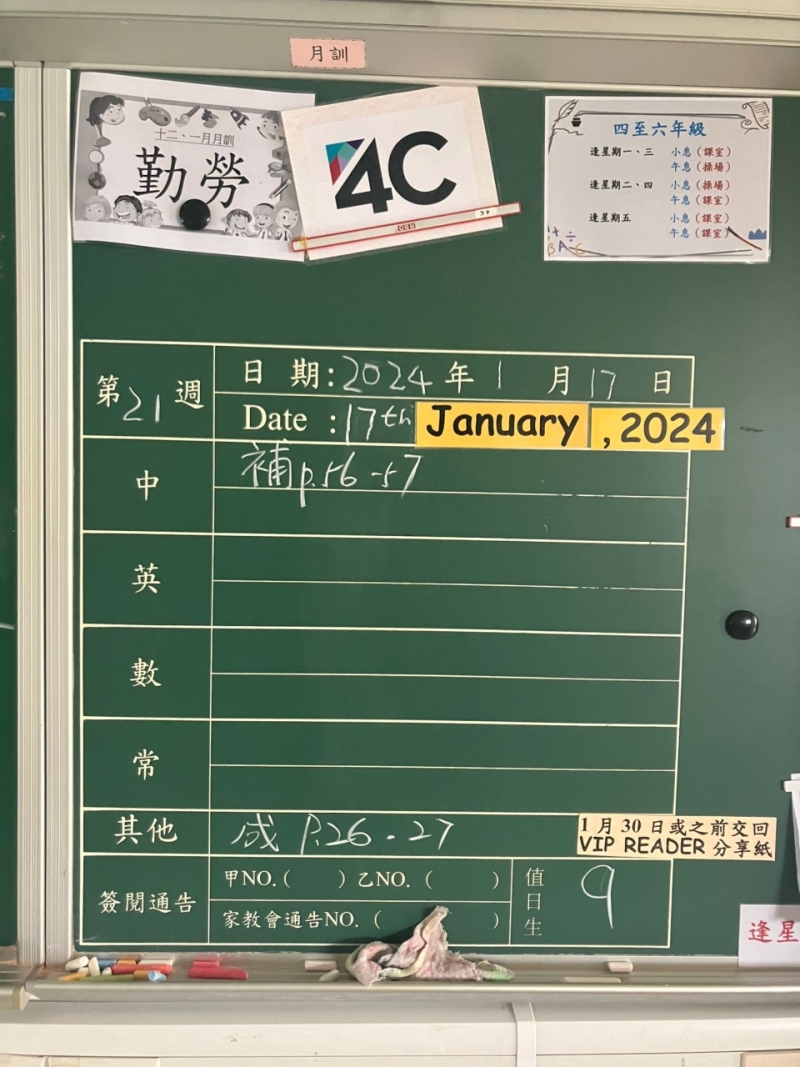 月訓
十二、一月月訓
勤勞
4C
四至六年級
逢星期一、三 小息（課室）
午息（操場）
逢星期二、四 小息（操場）
午息（課室）
逢星期五 小息（課室）
午息（課室）
第21週
日 期：2024年1月17日
Date ：17th January , 2024
中 補p.56-57
英
數
常
其他 成 P.26-27
1月30日或之前交回
VIP READER 分享紙
簽閱通告
甲NO.（ ）乙NO.（ ）
家教會通告NO.（ ）
值日生 9
逢星